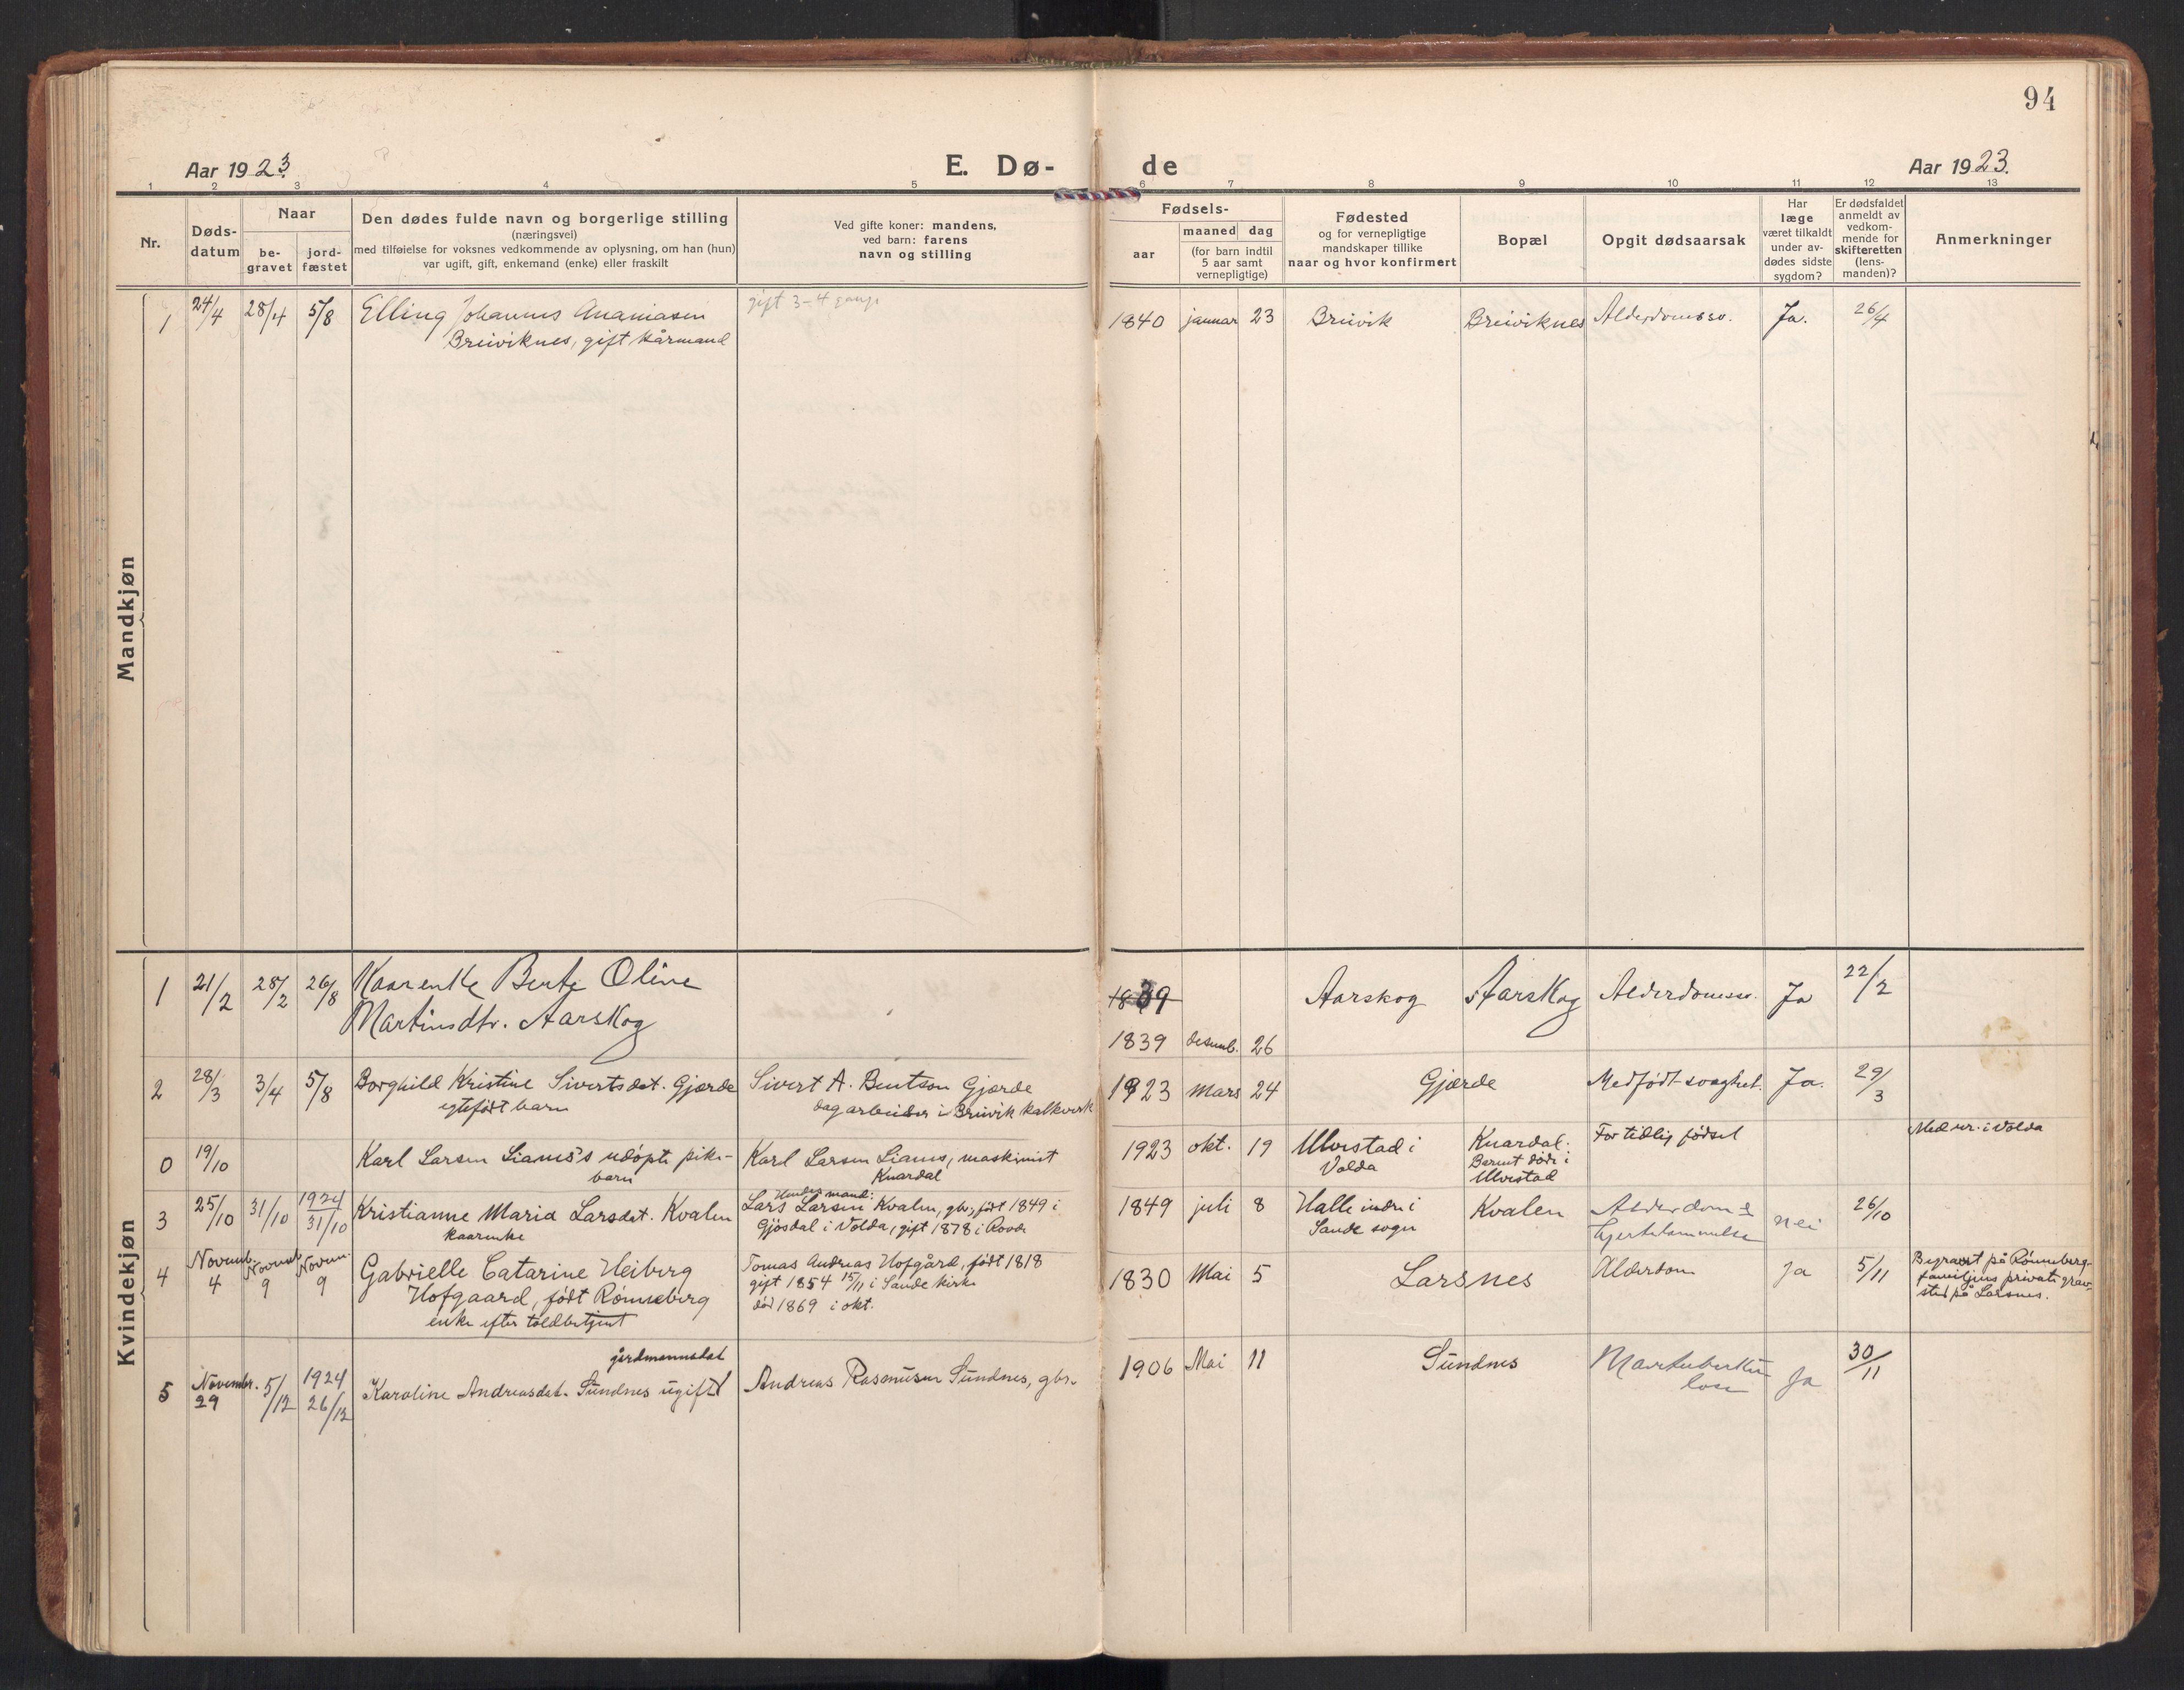 94
Aar 1923. E. Dø- de Aar 1923.
1 2 3 4 5 6 7 8 9 10 11 12 13
Nr.
Døds-
datum
Naar
be-
gravet
jord-
fæstet
Den dødes fulde navn og borgerlige stilling
(næringsvei)
med tilføielse for voksnes vedkommende av oplysning, om han (hun)
var ugift, gift, enkemand (enke) eller fraskilt
Ved gifte koner: mandens,
ved barn: farens
navn og stilling
Fødsels-
aar
maaned dag
(for barn indtil
5 aar samt
vernepligtige)
Fødested
og for vernepligtige
mandskaper tillike
naar og hvor konfirmert
Bopæl
Opgit dødsaarsak
Har
læge
været tilkaldt
under av-
dødes sidste
sygdom?
Er dødsfaldet
anmeldt av
vedkom-
mende for
skifteretten
(lens-
manden)?
Anmerkninger
Mandkjøn
1 24/4 28/4 5/8 Elling Johannes Ananiasen
Breiviknes, gift kårmand
gift 3-4 gange
1840 januar 23 Breivik Breiviknes Alderdomssv. Ja. 26/4
Kvindekjøn
1 21/2 28/2 26/8 Kaarenke Berte Oline
Martinsdtr. Aarskog
1839 Aarskog Aarskog Alderdomssv. Ja 22/2
1839 desemb. 26
2 28/3 3/4 5/8 Borghild Kristine Sivertsdat. Gjærde
egtefødt barn
Sivert A. Bentson Gjærde
dagarbeider i Breivik kalkverk
1923 Mars 24 Gjærde Medfødt svaghet. Ja. 29/3
0 19/10 Karl Larsen Lianes's udøpte pike-
barn
Karl Larsen Lianes, maskinist
Knardal
1923 okt. 19 Ulvestad i
Volda
Knardal.
Barnet døde i
Ulvestad
For tidlig fødsel
Med nr. i Volda
3 25/10 31/10 1924
31/10 Kristianne Maria Larsdat. Kvalen
kaarenke
Hendes mand:
Lars Larsen Kvalen, gbr., født 1849 i
Gjøsdal i Volda, gift 1878 i Rovde
1849 juli 8 Halle indre i
Sande sogn
Kvalen Alderdom &
hjertelammelse nei 26/10
4 Novemb.
4 Novemb.
9 Novem.
9 Gabrielle Catarine Heiberg
Hofgaard, født Rønneberg
enke efter toldbetjent
Tomas Andreas Hofgård, født 1818
gift 1854 15/11 i Sande kirke
død 1869 i okt.
1830 Mai 5 Larsnes Alderdom ja 5/11
Begravet på Rønneberg-
familjens private grav-
sted på Larsnes.
5 Novembr.
29 5/12 1924
26/12
gårdmannsdat
Karoline Andreasdat. Sundnes ugift
Andreas Rasmusen Sundnes, gbr.
1906 Mai 11 Sundnes Mavetuberku
lose Ja 30/11